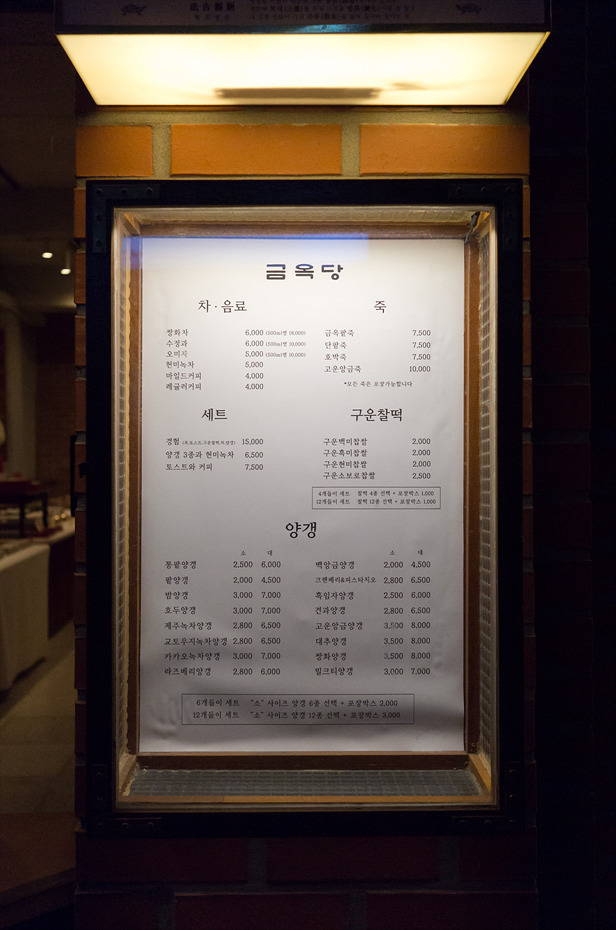 금옥당
차 · 음료
쌍화차 6,000 (500ml병 18,000)
수정과 6,000 (500ml병 10,000)
오미지 5,000 (500ml병 10,000)
현미녹차 5,000
마일드커피 4,000
레귤러커피 4,000
죽
금옥팥죽 7,500
단팥죽 7,500
호박죽 7,500
고운앙금죽 10,000
*모든 죽은 포장가능합니다
세트
경험 15,000
양갱 3종과 현미녹차 6,500
토스트와 커피 7,500
구운찰떡
구운백미찹쌀 2,000
구운흑미찹쌀 2,000
구운현미찹쌀 2,000
구운소보로찹쌀 2,500
4개들이 세트 찰떡 4종 선택 + 포장박스 1,000
12개들이 세트 찰떡 12종 선택 + 포장박스 1,000
양갱
소 대
통팥양갱 2,500 6,000
팥양갱 2,000 4,500
밤양갱 3,000 7,000
호두양갱 3,000 7,000
제주녹차양갱 2,800 6,500
교토우지녹차양갱 2,800 6,500
카카오녹차양갱 3,000 7,000
라즈베리양갱 2,800 6,500
소 대
백앙금양갱 2,000 4,500
크랜베리&피스타치오 2,800 6,500
흑임자양갱 2,500 6,000
견과양갱 2,800 6,500
고운앙금양갱 3,500 8,000
대추양갱 3,500 8,000
쌍화양갱 3,500 8,000
밀크티양갱 3,000 7,000
6개들이 세트 "소" 사이즈 양갱 6종 선택 + 포장박스 2,000
12개들이 세트 "소" 사이즈 양갱 12종 선택 + 포장박스 3,000